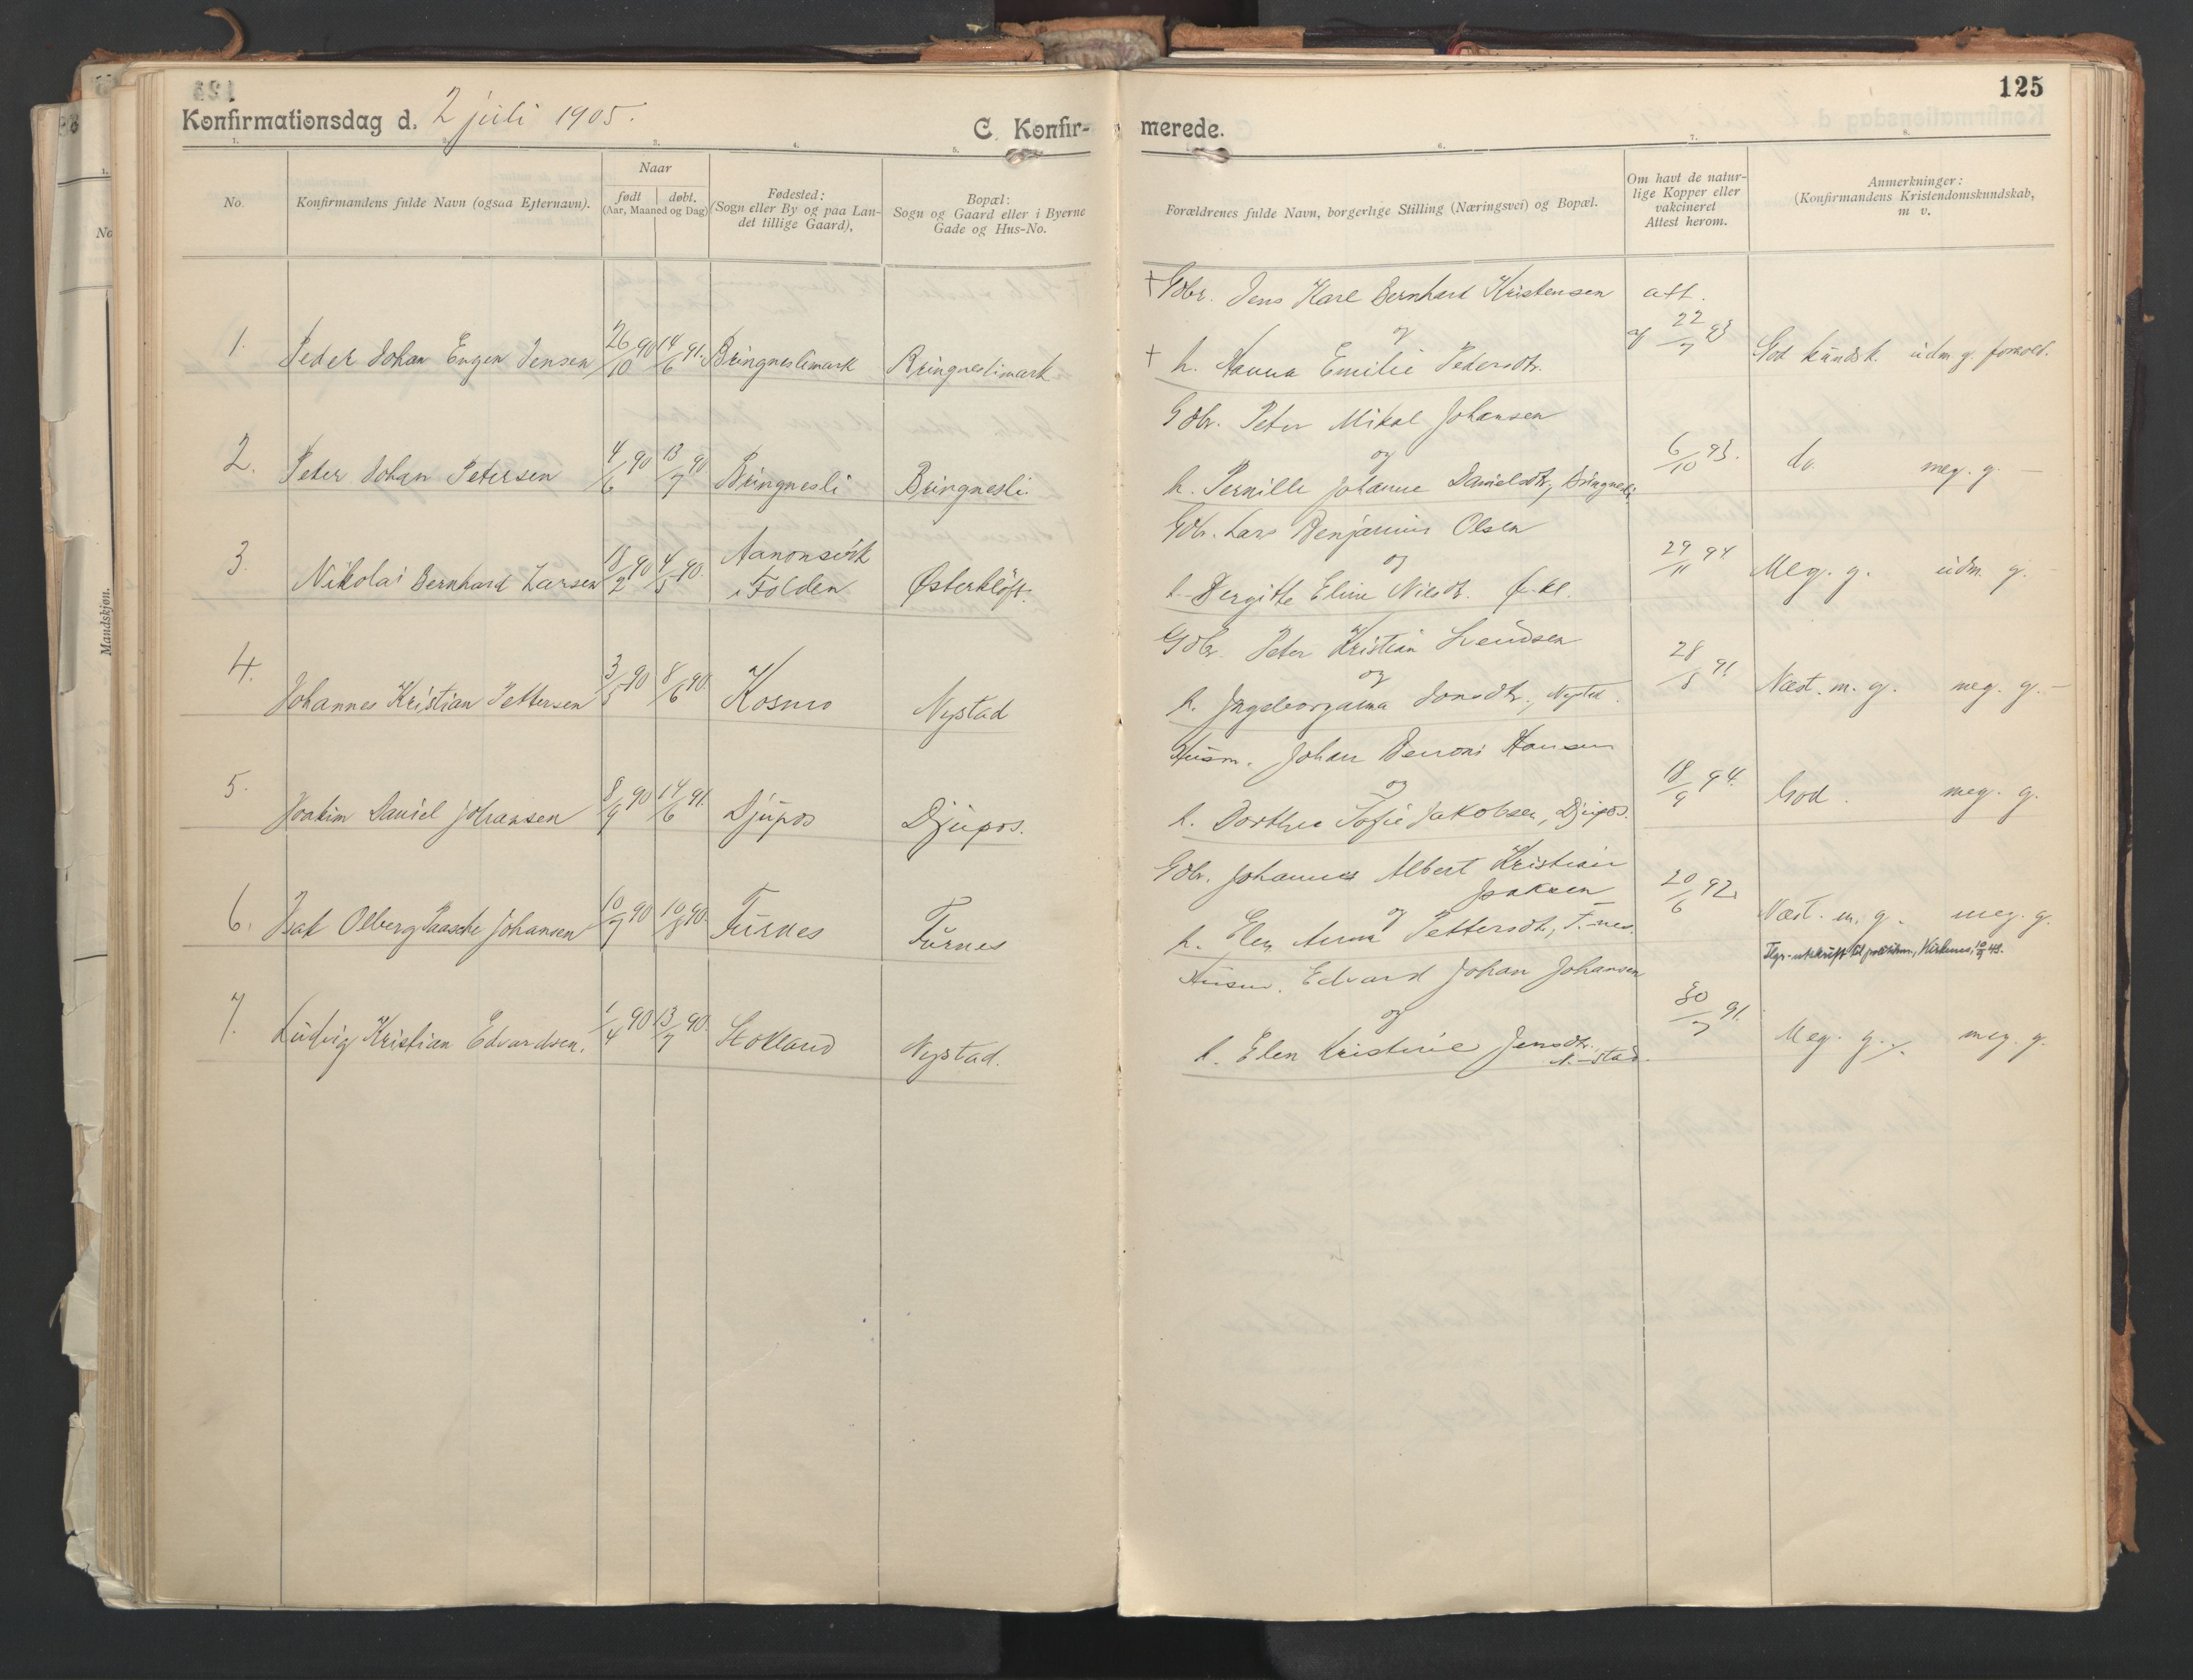 125
Konfirmationsdag d. 2 juli 1905.
C. Konfir- merede.
1. 2. 3. 4. 5. 6. 7. 8.
No.
Konfirmandens fulde Navn (ogsaa Efternavn).
Naar
født døbt.
(Aar, Maaned og Dag)
Fødested:
(Sogn eller By og paa Lan-
det tillige Gaard),
Bopæl:
Sogn og Gaard eller i Byerne
Gade og Hus-No.
Forældrenes fulde Navn, borgerlige Stilling (Næringsvei) og Bopæl.
Om havt de natur-
lige Kopper eller
vakcineret
Attest herom.
Anmerkninger:
(Konfirmandens Kristendomskundskab,
m v.
Mandskjøn.
† Gdbr. Jens Karl Bernhard Kristensen att.
og
1. Peder Johan Eugen Jensen 26/10 90 14/6 91. Bringneslimark Bringneslimark † h. Hanna Emilie Pedersdtr. 22/7 93 God kundsk. udm. g. forhold.
Gdbr. Peter Mikal Johansen
og
2. Peter Johan Petersen 4/6 90 13/7 90 Bringnesli Bringnesli. h. Pernille Johanne Danielsdtr., Bringnesli 6/10 93. do. meg. g. —
Gdbr. Lars Benjamin Olsen
og
3. Nikolai Bernhard Larsen 18/2 90 4/5 90. Aanonsvik
i Folden Østerkløft. h. Bergitte Eline Nilsdtr. Ø.kl. 29/11 94 Meg. g. udm. g. —
Gdbr. Peter Kristian Svendsen
og
4. Johannes Kristian Pettersen 3/5 90 8/6 90. Kosmo Nystad h. Ingeborganna Jonsdtr., Nystad. 28/8 91 Næst. m. g. meg. g. —
Husm. Johan Benoni Hansen
og
5. Joakim Daniel Johansen 8/9 90 14/6 91. Djupos Djupos. h. Dorthea Sofie Jakobsen, Djupos. 18/9 94. God. meg. g.
Gdbr. Johannes Albert Kristian
Isaksen
og
6. Isak Olberg Paasche Johansen 10/7 90 10/8 90. Furnes Furnes h. Elen Anna Pettersdtr., F.-nes. 20/6 92. Næst. m. g. meg. g.
Husm. Edvard Johan Johansen
og
7. Ludvig Kristian Edvardsen. 1/4 90 13/7 90. Stokland Nystad. h. Elen Kristine Jensdtr.,
N.-stad. 30/7 91. Meg. g. meg. g.